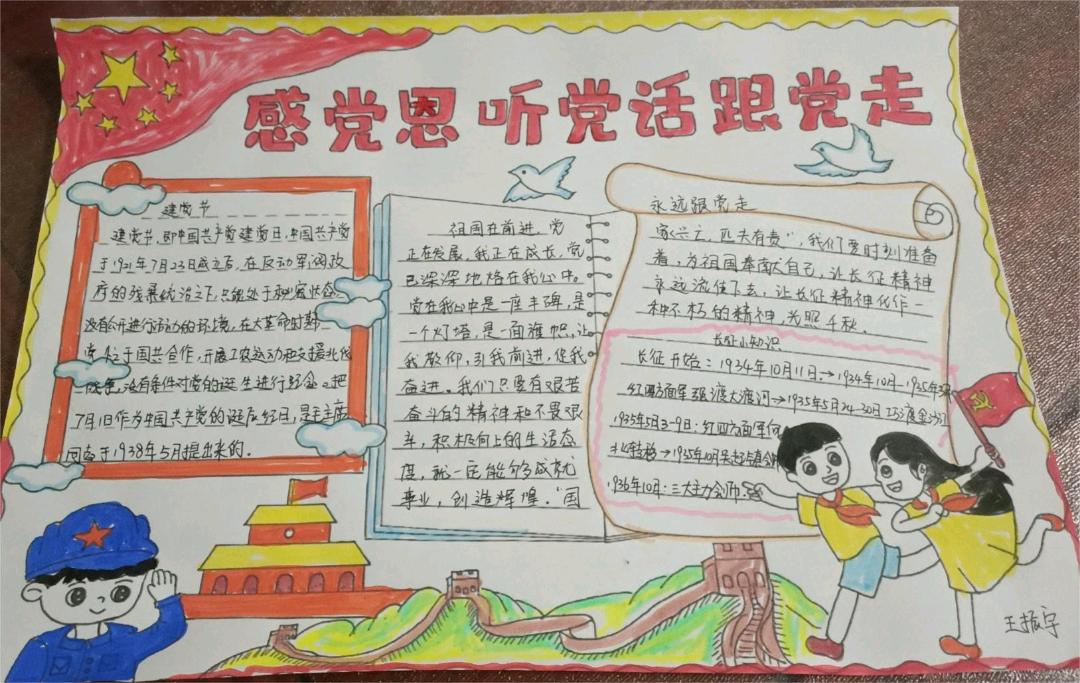 感党恩 听党话跟党走
建党节
建党节,即中国共产党建党日,中国共产党
于1921年7月23日成立后,在反动军阀政
府的残暴统治之下,只能处于秘密状态,
没有公开进行活动的环境,在大革命时期
党忙于国共合作,开展工农运动和支援北伐
战争,没有条件对党的诞生进行纪念。把
7月1日作为中国共产党的诞辰纪念日,是毛主席
同志于1938年5月提出来的。
祖国在前进,党
正在发展,我正在成长,党
已深深地烙在我心中。
党在我心中是一座丰碑,是
一个灯塔,是一面旗帜,让
我敬仰,引我前进,促我
奋进。我们只要有艰苦
奋斗的精神和不畏艰
辛,积极向上的生活态
度,就一定能够成就
事业,创造辉煌。“国
永远跟党走
家兴亡,匹夫有责”,我们要时刻准备
着,为祖国奉献自己,让长征精神
永远流传下去,让长征精神化作一
种不朽的精神,光照千秋。
长征小知识
长征开始:1934年10月11日→1934年10月-1935年
红四方面军强渡大渡河→1935年5月24-30日
1935年5月3-9日:红四方面军向
北转移→1935年10月
1936年10月:三大主力会师
王振宇